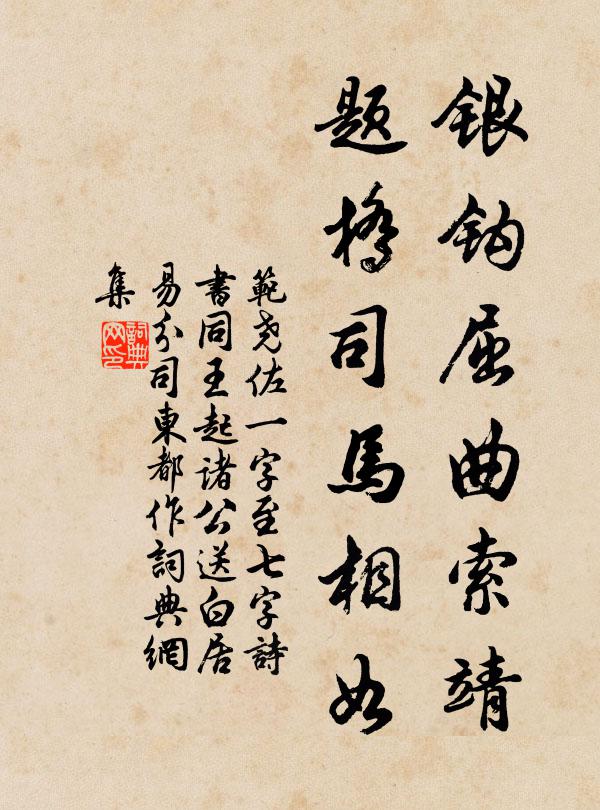 银钩屈曲索靖
题橋司馬相如
範尧佐一字至七字詩
書同王起诸公送白居
易分司東都作詞典網
集
詞典网印